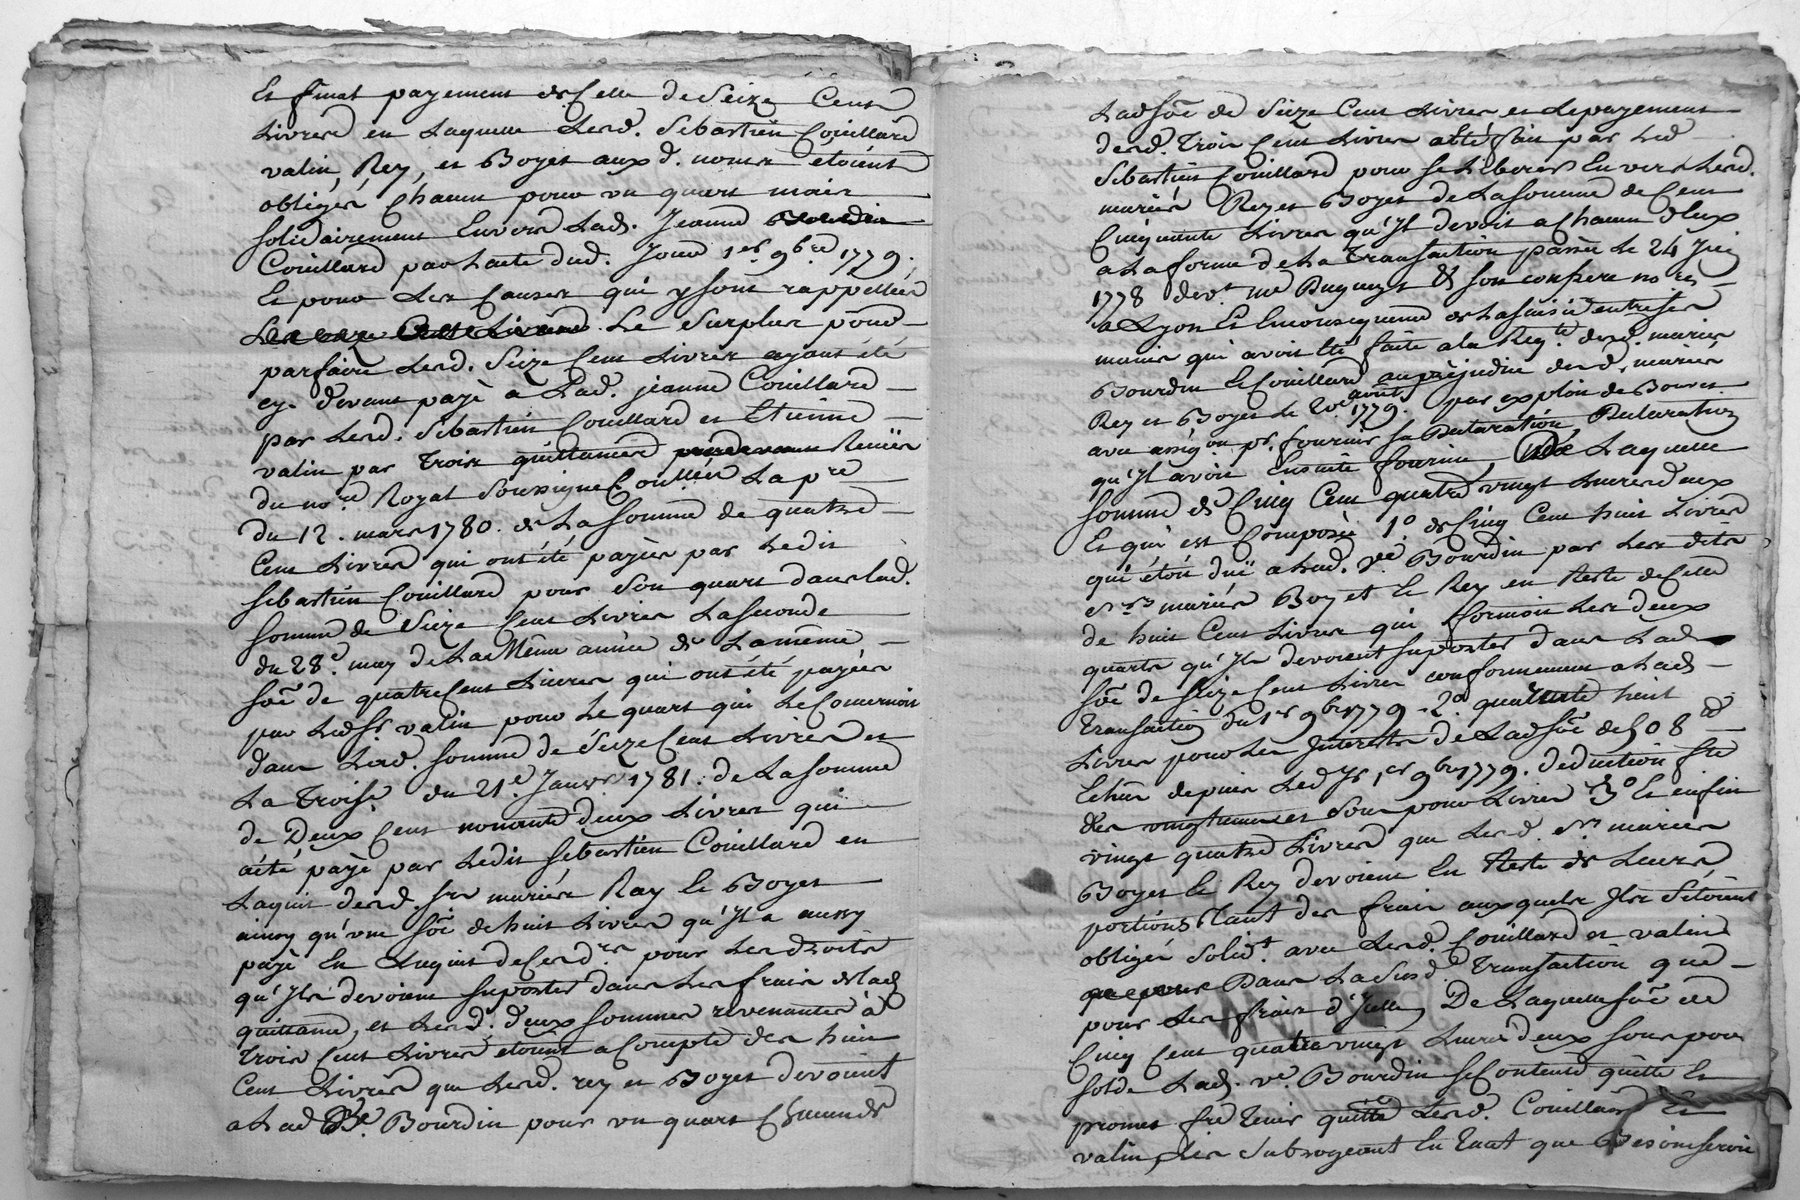 Et final payement de Celle de Seize Cent
Livres en Laquelle Lesd. Sebastien Couillard
valin, Rey, et Boyet aux d. noms etoient
obligés Chacun pour un quart mais
solidairement Envers Lad. Jeanne Bourdin
Couillard par Lacte dud. Jour 1er 9bre 1779.
Et pour Les Causes qui y sont rappellées
Le Surplus pour
parfaire Lesd. Seize Cent Livres ayant été
cy devant payé a Lad. jeanne Couillard
par Lesd. Sebastien Couillard et Etienne
valin par trois quittances Reciies
du no.re Royal Soussigné Coulliés La pre
du 12. mars 1780. de La somme de quatre
Cent Livres qui ont été payées par Ledit
sebastien Couillard pour Son quart dans lad.
somme de Seize Cent Livres La seconde
du 28e. may de La Même année de La même
soê de quatre Cent Livres qui ont été payées
par Led Sr. valin pour Le quart qui Le Concernoit
dans Lesd. somme de Seize Cent Livres et
La Troise. du 21e. Janvr. 1781. de La somme
de Deux Cent nonante deux Livres qui
a été payé par Ledit sebastien Couillard en
Laquit desd. srs mariés Ray Et Boyet
ainsy qu'une soê de huit Livres qu'Il a aussy
payé En Laquit de Cesd.rs pour Les droits
qu'Ils devoient suporter dans Les frais de Lad
quittance, et Lesd. deux sommes revenantes à
Trois Cent Livres etoient a Compte des huit
Cent Livres que Lesd. rey et Boyet devoient
a Lad Ve. Bourdin pour un quart Chacun de
Lad soê de Seize Cent Livres et Le payement
desd. Trois Cent Livres a été fait par Led
Sebastien Couillard pour se Liberer Envers Lesd.
mariés Rey et Boyet de La somme de Cent
Cinquante Livres qu'Il devoit a Chacun d'Eux
a La forme de La Transaction passée Le 24 Juin
1778 devt. me Dugueyt & son confrere no.res
a Lyon Et En consequence de La saisie entre ses
mains qui avoit Eté faite a la Reqte. desd. mariés
Bourdin Et Couillard au préjudice desd. mariés
Rey et Boyet Le 20e avril 1779. par exploit de Bouvet
avec assig.on pr. fournir sa Declaration, Declaration
qu'Il avoit Ensuite fournie, Laquelle
somme de Cinq Cent quatre vingt Livres deux
Et qui est Composée 1o. de Cinq Cent huit Livres
qui étoit duë a Lad. Ve. Bourdin par Les dits
Srs mariés Boyet Et Rey en Reste de Celle
de huit Cent Livres qui formoit Les deux
quarts qu'Ils devoient suporter dans Lad
soê de Seize Cent Livres conformement a Lad
transaction du 1er 9bre 1779. 2o quarante huit
Livres pour Les Interests de Lad soê de 508 ₶
Echus depuis Led Jr. 1er 9bre 1779. deduction fte
des vingtiemes et Sous pour Livres 3o Et enfin
vingt quatre Livres que Lesd Srs mariés
Boyet Et Rey devoient En Reste de Leurs
portions Tant des frais auxquels Ils S'étoient
obligés Solidt. avec Lesd. Couillard et valin
Dans La Susd. Transaction que
pour Les frais d'Icelle, De Laquelle soê de
Cinq Cent quatre vingt Livres deux sous pour
solde Lad. ve. Bourdin se Contente quitte Et
promet fre Tenir quitte Lesd. Couillard Et
valin, Les Subrogeant En tant que Besoin seroit